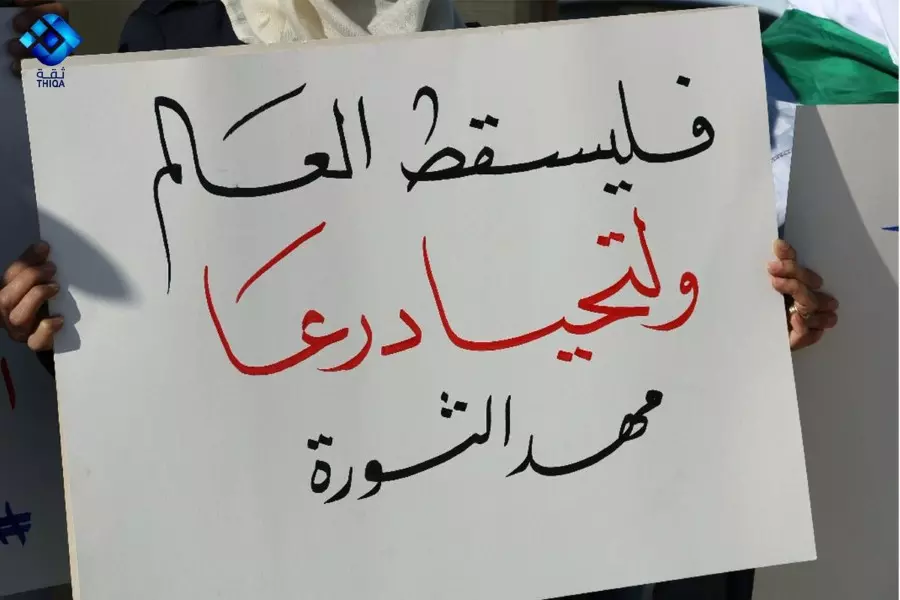 ثقة
THIQA
فليسقط العالم
ولتحيا درعا
مهد الثورة
#